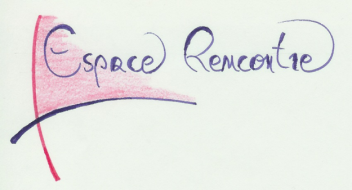 Espace Rencontre